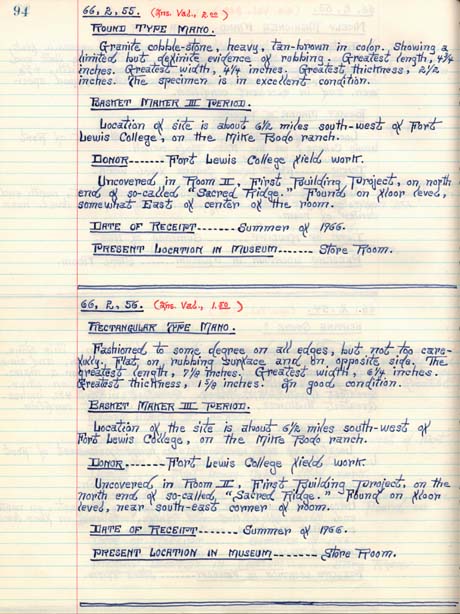 94
66, 2, 55. (Ins. Val., 2.00)
Round Type Mano.
Granite cobble-stone, heavy, tan-brown in color, showing a
limited but definite evidence of rubbing. Greatest length, 4 3/4
inches. Greatest width, 4 1/4 inches. Greatest thickness, 2 1/2
inches. The specimen is in excellent condition.
Basket Maker III Period.
Location of site is about 6 1/2 miles south-west of Fort
Lewis College, on the Mike Bodo ranch.
Donor------- Fort Lewis College field work.
Uncovered in Room II, First Building Project, on north
end of so-called "Sacred Ridge." Found on floor level,
somewhat East of center of the room.
Date of Receipt------- Summer of 1966.
Present Location in Museum------- Store Room.
66, 2, 56. (Ins. Val., 1.50)
Rectangular Type Mano.
Fashioned to some degree on all edges, but not too care-
fully. Flat, on rubbing surface and on opposite side. The
greatest length, 7 1/8 inches. Greatest width, 6 1/4 inches.
Greatest thickness, 1 5/8 inches. In good condition.
Basket Maker III Period.
Location of the site is about 6 1/2 miles south-west of
Fort Lewis College, on the Mike Bodo ranch.
Donor------- Fort Lewis College field work.
Uncovered in Room II, First Building Project, on the
north end of so-called, "Sacred Ridge." Found on floor
level, near south-east corner of room.
Date of Receipt------- Summer of 1966.
Present Location in Museum------- Store Room.